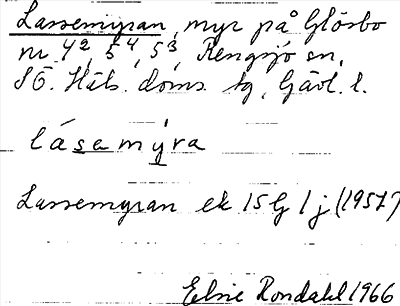 Lassemyran, myr på Glösbo
nr 4², 5⁴, 5³, Rengsjö sn,
SÖ. Häls. doms. tg, Gävl. l.
lásemyra
Lassemyran ek 15G 1j (1957)
Elsie Rondahl 1966